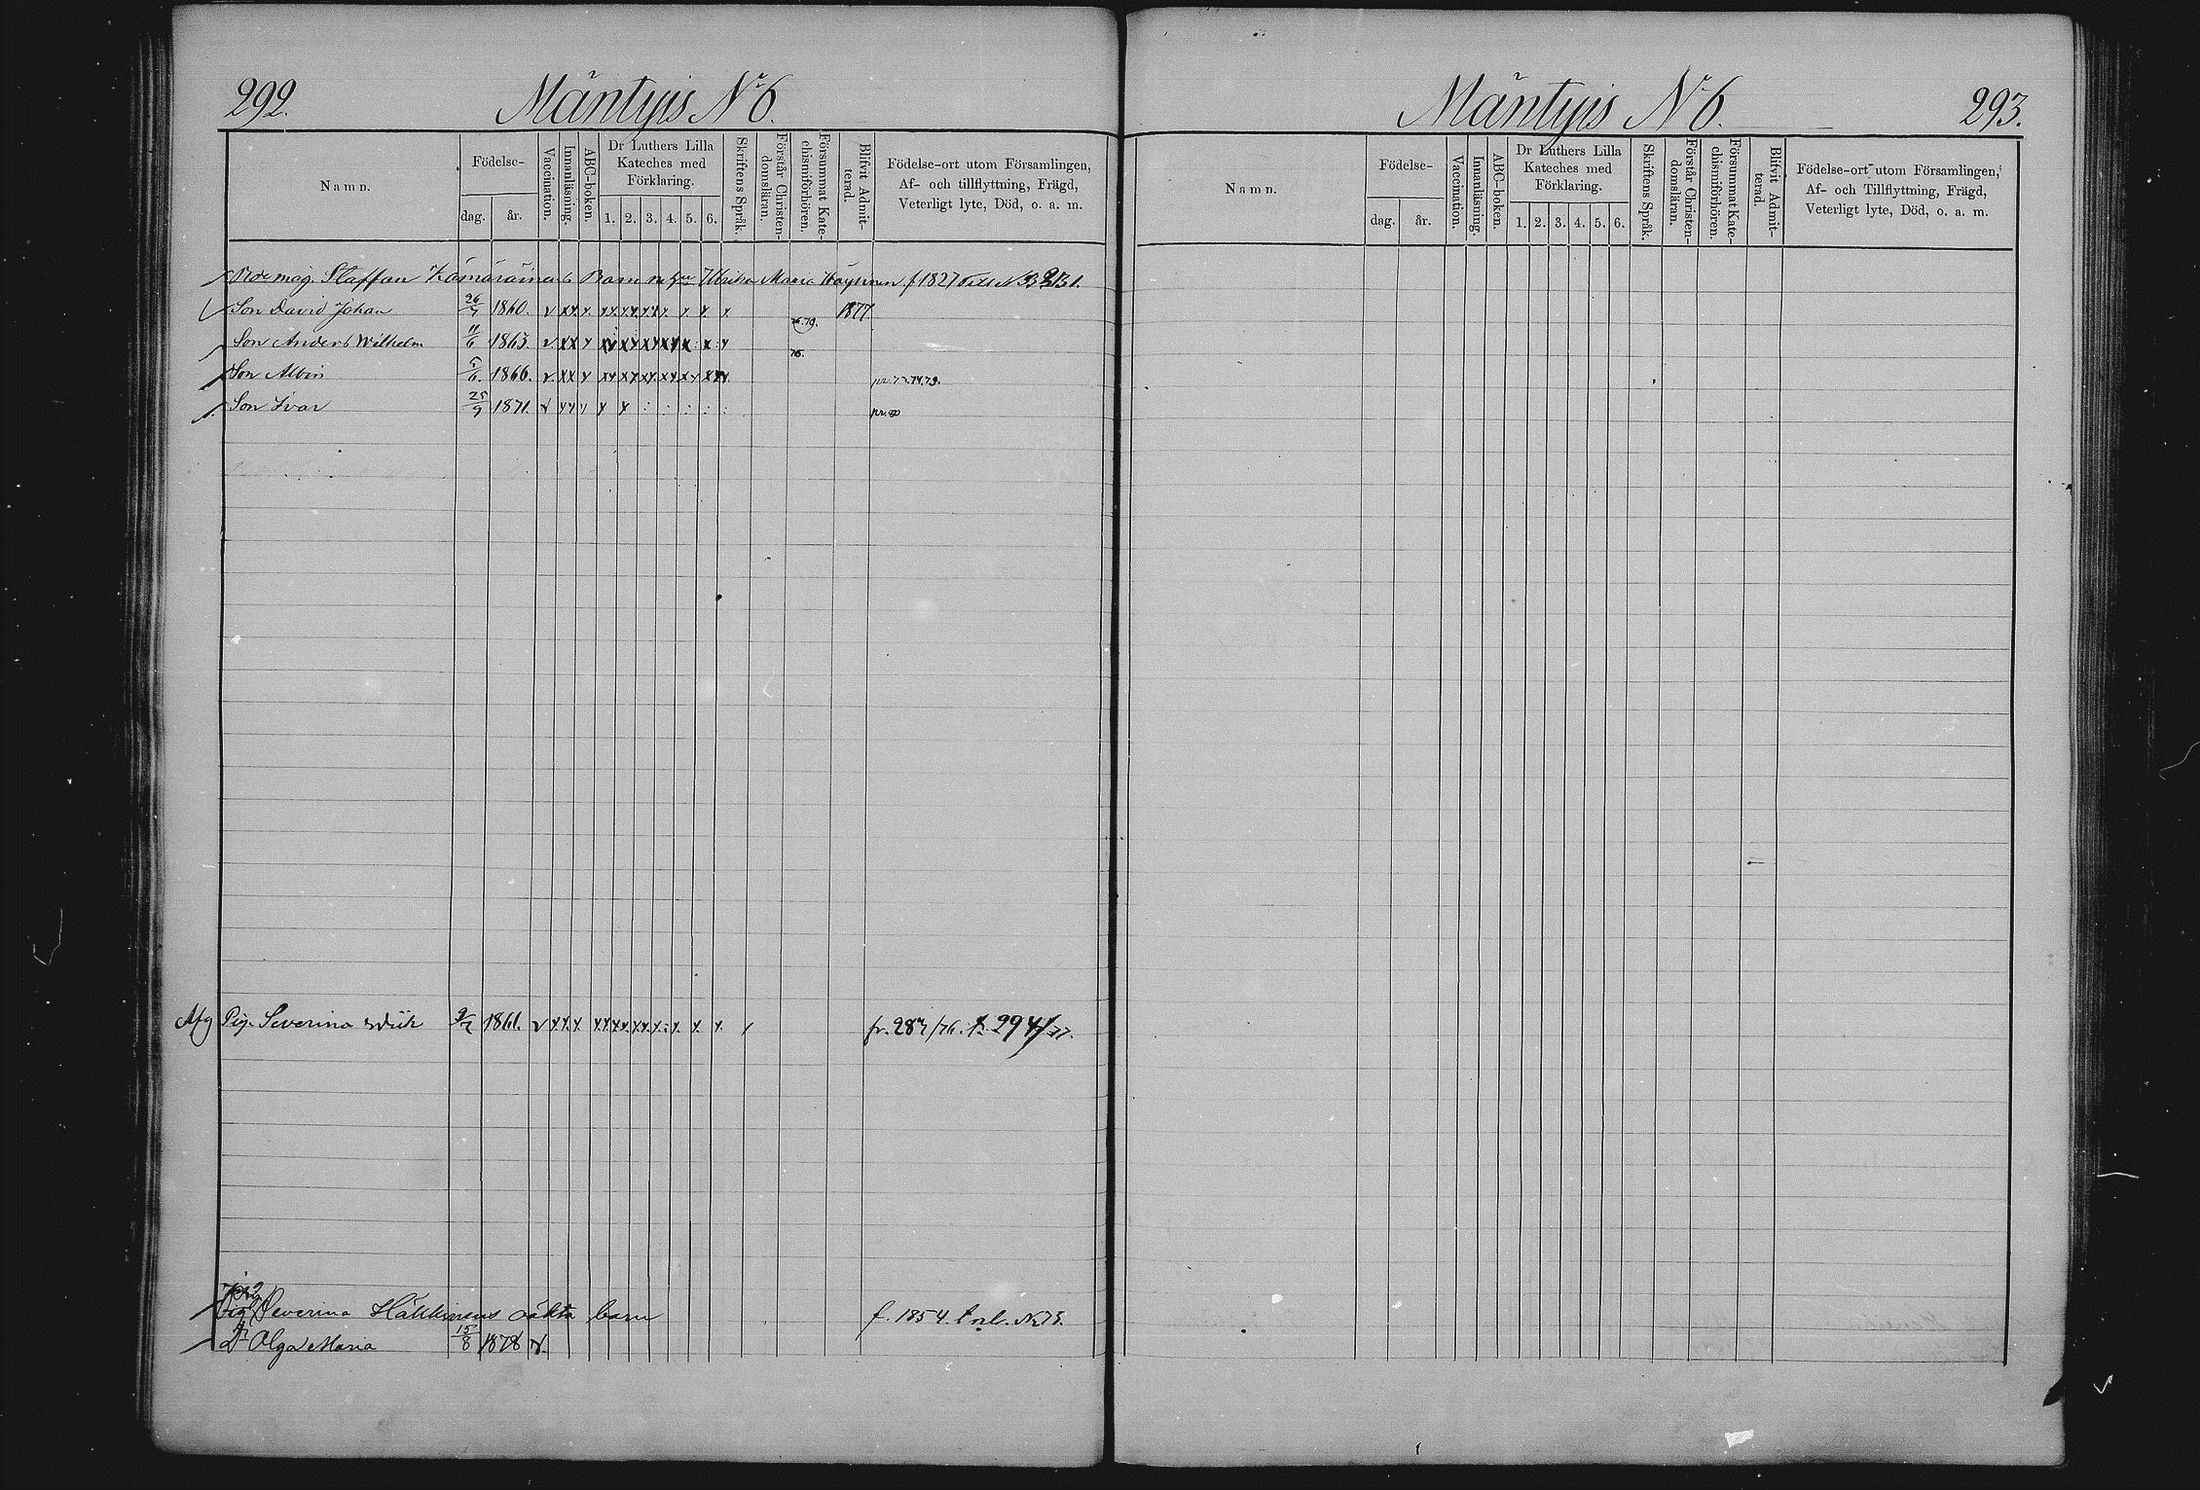 292.
Mäntyis No 6.
Namn.
Födelse-
dag. år.
Vaccination.
Innanläsning.
ABC-boken.
Dr Luthers Lilla
Kateches med
Förklaring.
1. 2. 3. 4. 5. 6.
Skriftens Språk.
Förstår Christen-
domsläran.
Försummat Kate-
chismiförhören.
Blifvit Admit-
terad.
Födelse-ort utom Församlingen,
Af- och tillflyttning, Frägd,
Veterligt lyte, Död, o. a. m.
Staffan Barn m Ulrika Maria f 1827
Son David Johan 26/7 1860. 79. 1877
Son Anders Wilhelm 11/6 1863. 76.
Son Albin 5/6 1866.
Son Ivar 25/9 1871.
Afg Pig. Severina 1861. fr. 287/76. 294/77.
Pig. Severina Häkkinens oäkta barn f. 1854.
Dr Olga Maria 15/8 1878
Mäntyis No 6.
293.
Namn.
Födelse-
dag. år.
Vaccination.
Innanläsning.
ABC-boken.
Dr Luthers Lilla
Kateches med
Förklaring.
1. 2. 3. 4. 5. 6.
Skriftens Språk.
Förstår Christen-
domsläran.
Försummat Kate-
chismiförhören.
Blifvit Admit-
terad.
Födelse-ort utom Församlingen,
Af- och Tillflyttning, Frägd,
Veterligt lyte, Död, o. a. m.